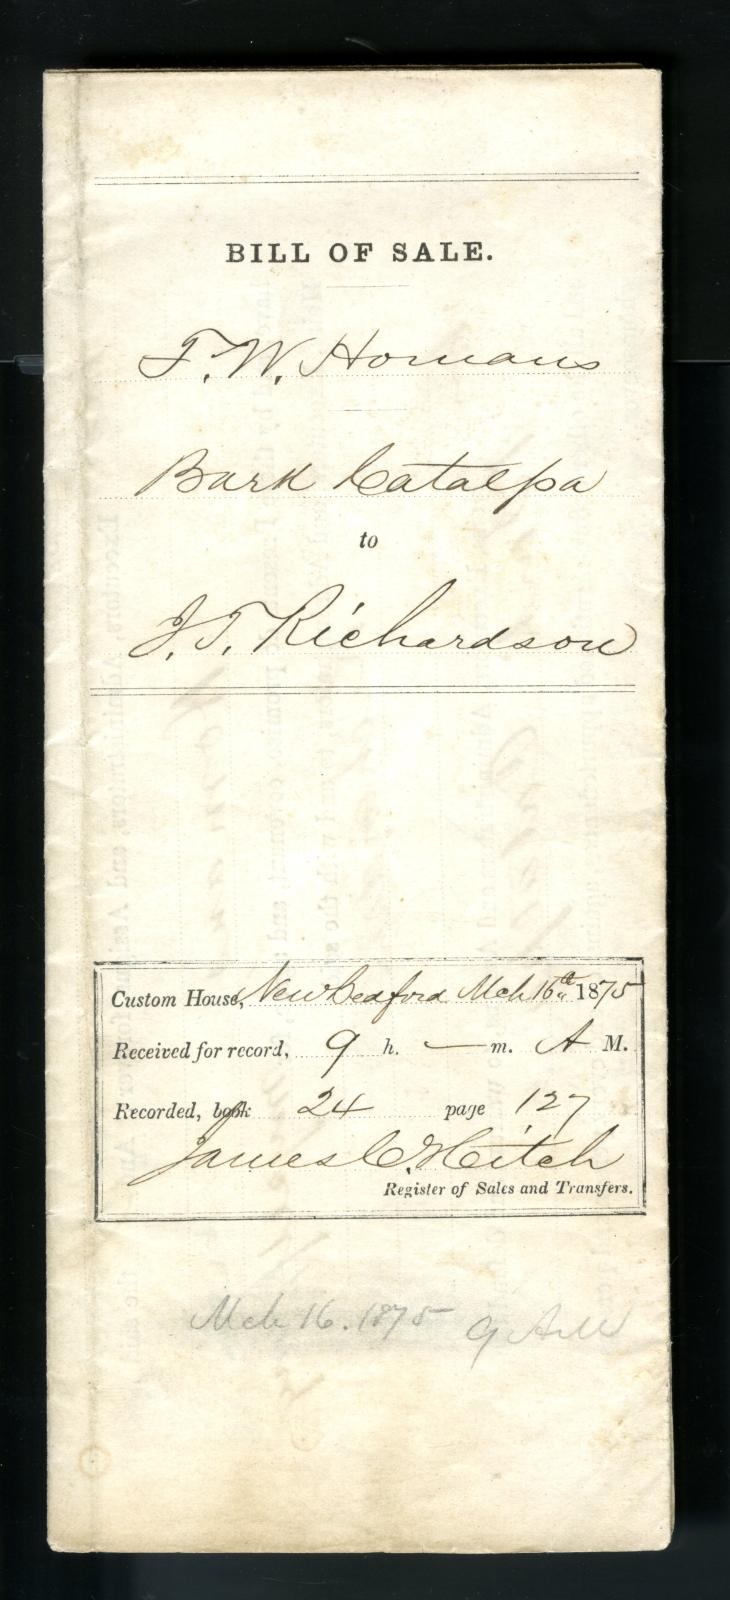 BILL OF SALE.
T. W. Homans
Bark Catalpa
to
J. T. Richardson
Custom House, New Bedford Mch 16th 1875
Received for record, 9 h. — m. A M.
Recorded, book 24 page 127
James C. Hitch
Register of Sales and Transfers.
Mch 16. 1875 9 AM